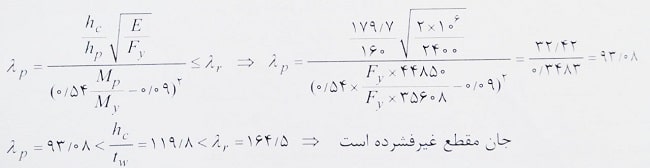 λp = (hc/hp √(E/Fy)) / (۰/۵۴ Mp/My − ۰/۰۹)^۲ ≤ λr ⇒ λp = (۱۷۹/۷/۱۶۰ √(۲×۱۰^۶/۲۴۰۰)) / (۰/۵۴ × Fy×۴۴۸۵۰/Fy×۳۵۶۰۸ − ۰/۰۹)^۲ = ۳۲/۴۲ / ۰/۳۴۸۳ = ۹۳/۰۸
λp = ۹۳/۰۸ < hc/tw = ۱۱۹/۸ < λr = ۱۶۴/۵ ⇒ جان مقطع غیرفشرده است